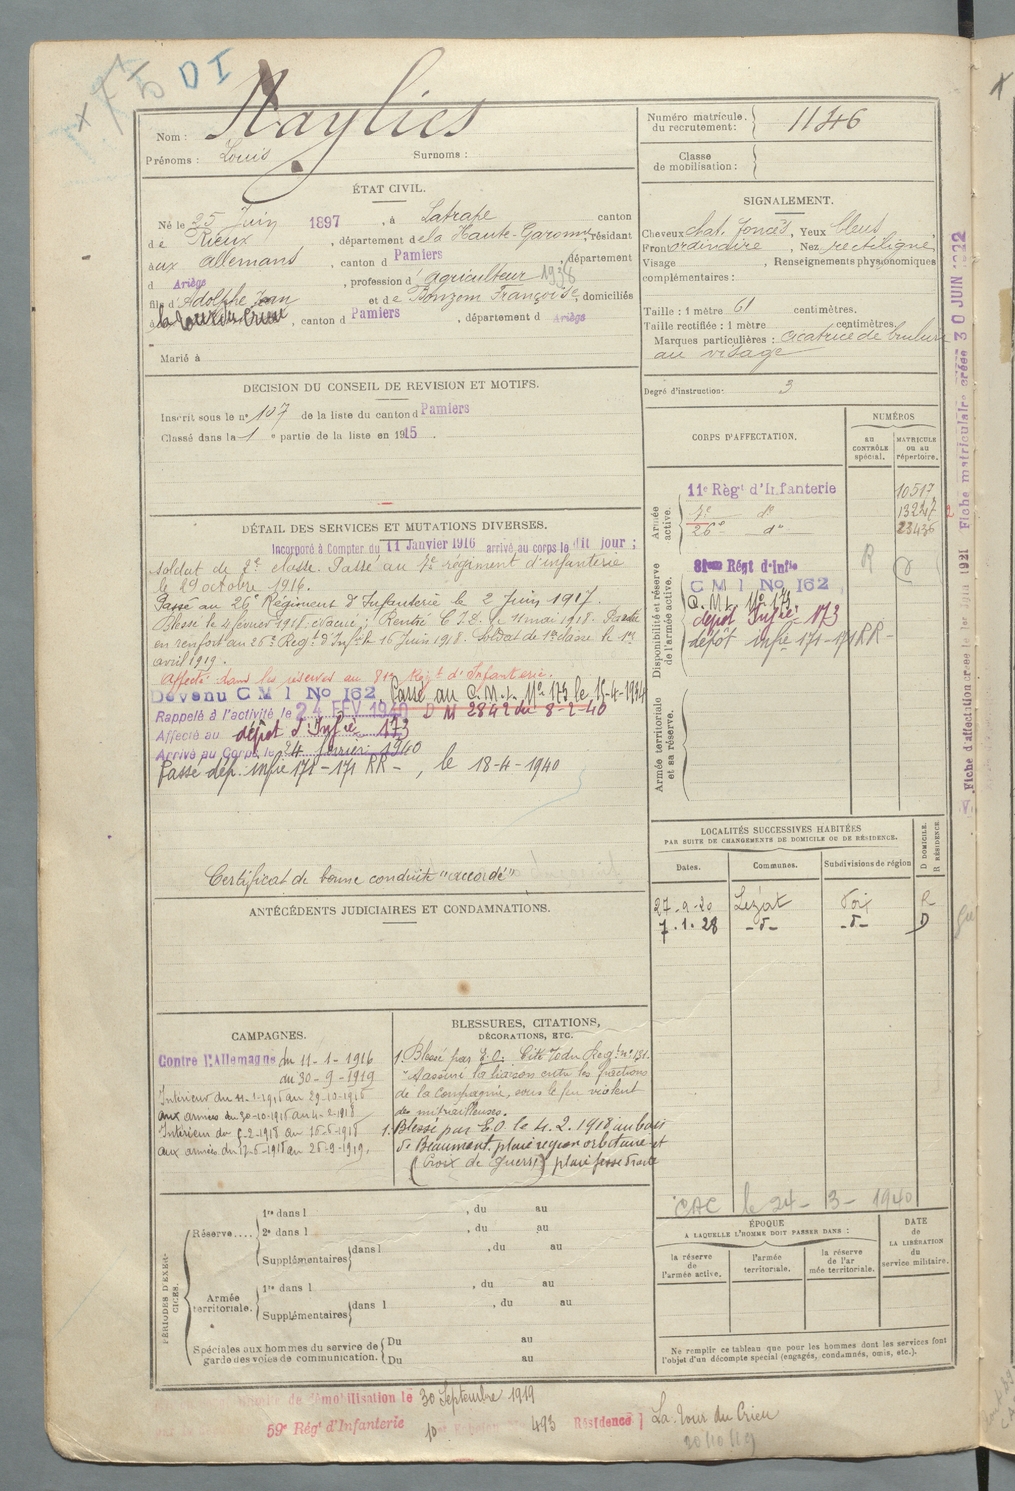 DI
Nom : Naylies
Prénoms : Louis Surnoms :
Numéro matricule du recrutement : 1146
Classe de mobilisation :
ÉTAT CIVIL.
Né le 25 Juin 1897, à Latrape canton
de Rieux, département de la Haute-Garonne, résidant
aux Allemans, canton d Pamiers, département
d Ariège, profession d'agriculteur 1938
fils d'Adolphe Jean et de Bonzom Françoise, domiciliés
à la Tour du Crieu, canton d Pamiers, département d Ariège
Marié à
SIGNALEMENT.
Cheveux chat. foncés, Yeux bleus
Front ordinaire, Nez rectiligne
Visage , Renseignements physionomiques
complémentaires :
Taille : 1 mètre 61 centimètres.
Taille rectifiée : 1 mètre centimètres.
Marques particulières : cicatrice de brulure
au visage
Degré d'instruction : 3
DECISION DU CONSEIL DE REVISION ET MOTIFS.
Inscrit sous le n° 107 de la liste du canton d Pamiers
Classé dans la 1 e partie de la liste en 1915.
DÉTAIL DES SERVICES ET MUTATIONS DIVERSES.
Incorporé à Compter du 11 Janvier 1916 arrivé au corps le dit jour ;
soldat de 2e classe. Passé au 7e régiment d'infanterie
le 29 octobre 1916.
Passé au 26e Régiment d'Infanterie le 2 Juin 1917.
Blessé le 4 février 1918 évacué ; Rentré C.I.D. le 11 mai 1918. Passé
en renfort au 26e Regt d'Inf. le 16 Juin 1918. Soldat de 1re classe le 1er
avril 1919.
Affecté dans les réserves au 81e Régt d'Infanterie.
Devenu C M I No 162. Passé au C.M.I. No 173 le 15-4-1934
Rappelé à l'activité le 24 FEV 1940 D M 2842 du 8-2-40
Affecté au dépôt d'Infie 173
Arrivé au Corps le 24 février 1940
Passé dép. infie 171-171 RR-, le 18-4-1940
Certificat de bonne conduite "accordé"
CORPS D'AFFECTATION.
NUMÉROS
AU CONTRÔLE spécial.
MATRICULE OU AU répertoire.
Armée active.
11e Régt d'Infanterie 10517
7e do 13247
26e do 23436
Disponibilité et réserve de l'armée active.
81eme Régt d'Infie R
C M I No 162
C.M.I. No 173
dépôt Infie 173
dépôt infie 171-171 RR-
Armée territoriale et sa réserve.
LOCALITÉS SUCCESSIVES HABITÉES
PAR SUITE DE CHANGEMENTS DE DOMICILE OU DE RÉSIDENCE.
Dates. Communes. Subdivisions de région D DOMICILE. R RÉSIDENCE
27-9-20 Lézat Foix R
7-1-28 -d- -d- D
CAC le 24-3-1940
ANTÉCÉDENTS JUDICIAIRES ET CONDAMNATIONS.
CAMPAGNES.
Contre l'Allemagne du 11-1-1916
au 30-9-1919
Intérieur du 11-1-1916 au 29-10-1916
aux armées du 30-10-1916 au 4-2-1918
Intérieur du 5-2-1918 au 16-5-1918
aux armées du 17-5-1918 au 25-9-1919.
BLESSURES, CITATIONS,
DÉCORATIONS, ETC.
1. Blessé par E.O. Cité O. du Régt no 131.
assuré la liaison entre les fractions
de la compagnie, sous le feu violent
des mitrailleuses.
1. Blessé par E.O le 4.2.1918 au bois
de Beaumont, plaie region orbitaire et
(Croix de Guerre) plaie fesse droite
PÉRIODES D'EXERCICES.
Réserve.... 1re dans l , du au
2e dans l , du au
Supplémentaires dans l , du au
Armée territoriale. 1re dans l , du au
Supplémentaires dans l , du au
Spéciales aux hommes du service de garde des voies de communication. Du au
Du au
ÉPOQUE
A LAQUELLE L'HOMME DOIT PASSER DANS :
DATE de LA LIBÉRATION du service militaire.
la réserve de l'armée active.
l'armée territoriale.
la réserve de l'armée territoriale.
Ne remplir ce tableau que pour les hommes dont les services font
l'objet d'un décompte spécial (engagés, condamnés, omis, etc.).
de démobilisation le 30 Septembre 1919
59e Régt d'Infanterie 10 493 Résidence La Tour du Crieu
20/10/19
Fiche matriculaire créée 30 JUIN 1922
Fiche d'affectation créée le 1921